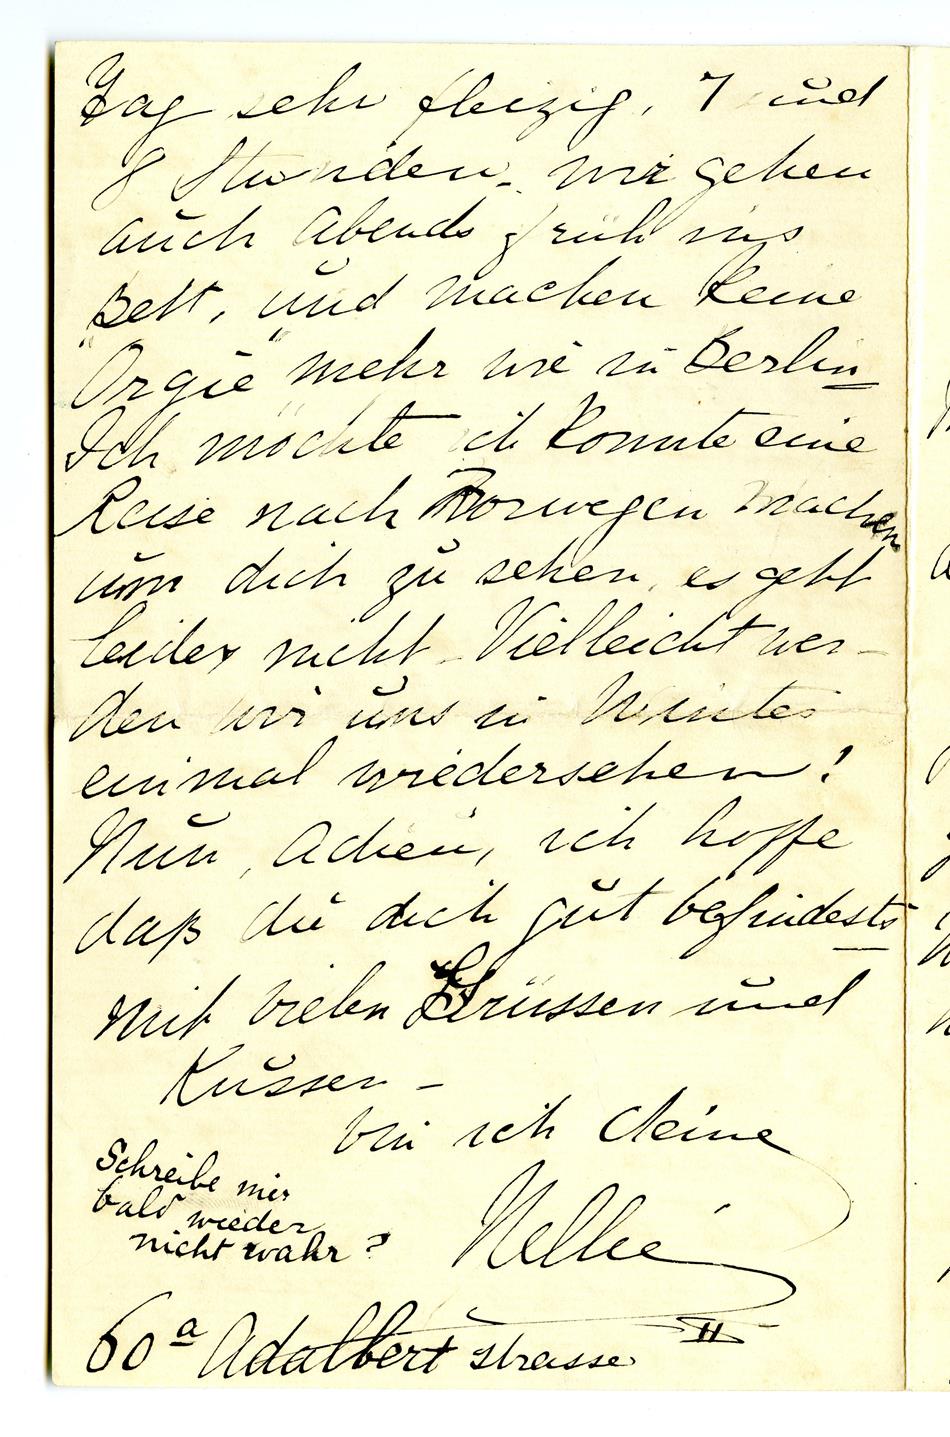 Tag sehr fleizig, 7 und
8 Stunden - wir gehen
auch Abends früh ins
Bett, und machen keine
"Orgie" mehr wie in Berlin
Ich möchte ich konnte eine
Reise nach Norwegen machen
um dich zu sehen, es geht
leider nicht - Vielleicht wer-
den wir uns in Winter
einmal wiedersehen!
Nun, Adieu, ich hoffe
daß du dich gut befindest
mit vielen Grüssen und
Küssen -
bin ich deine
Nellie
Schreibe mir
bald wieder
nicht wahr?
60a Adalbert strasse II